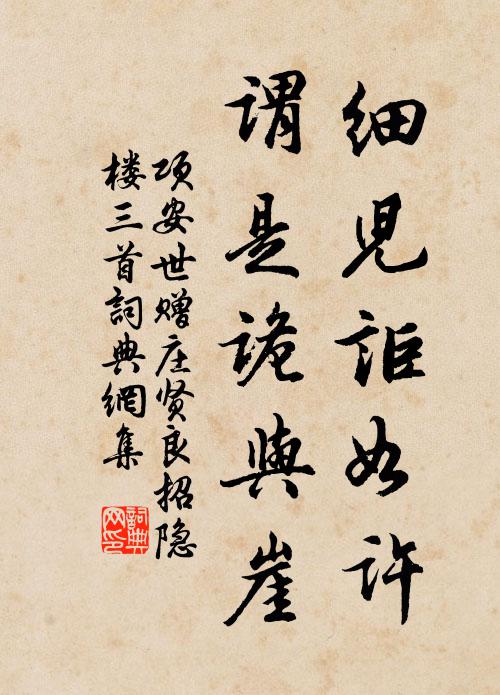 細兒詎如許
謂是詭與崖
项安世赠庄贤良招隐
楼三首詞典網集
詞典
网印